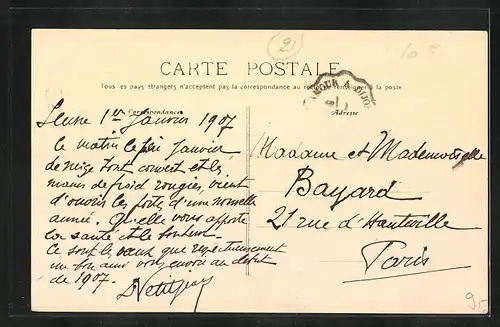 2
10 F
CARTE POSTALE
Tous les pays étrangers n'acceptent pas la correspondance au recto. Se renseigner à la poste
AMOUR A DIJON
Correspondance
Adresse
1er Janvier 1907
le matin le Janvier
de neige tout couvert et les
mains de froid rougies, vient
d'ouvrir les porte d'une nouvelle
année. Qu'elle vous apporte
la santé et le bonheur
Ce sont les vœux que respectueusement
un bon ami vous envoie au début
de 1907.
Madame et Mademoiselle
Bayard
21 rue d'Hauteville
Paris